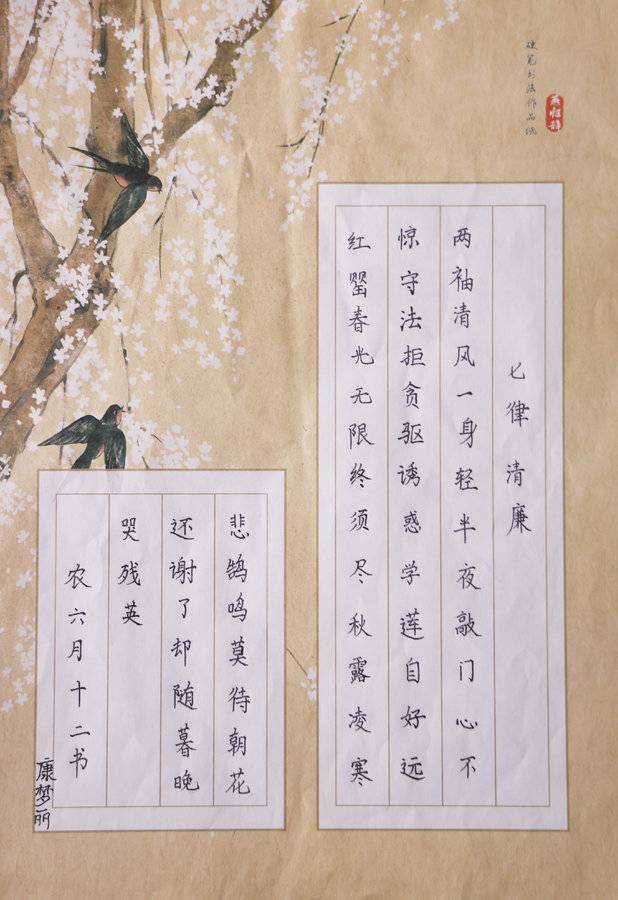 硬笔书法作品纸
燕归韵
七律 清廉
两袖清风一身轻半夜敲门心不
惊守法拒贪驱诱惑学莲自好远
红罂春光无限终须尽秋露凌寒
悲鹄鸣莫待朝花
还谢了却随暮晚
哭残英
农六月十二书
康梦丽